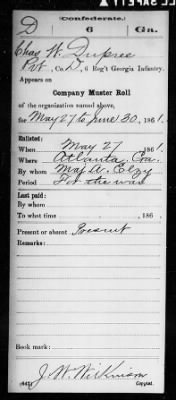 (Confederate.)
D 6 Ga.
Chas W. Dupree
Pvt, Co. D, 6 Reg't Georgia Infantry.
Appears on
Company Muster Roll
of the organization named above,
for May 27 to June 30, 1861.
Enlisted:
When May 27 1861.
Where Atlanta, Ga.
By whom Maj. A. Elzy
Period For the war
Last paid:
By whom
To what time , 186 .
Present or absent Present
Remarks:
Book mark:
J. W. Wilkinson
Copyist.